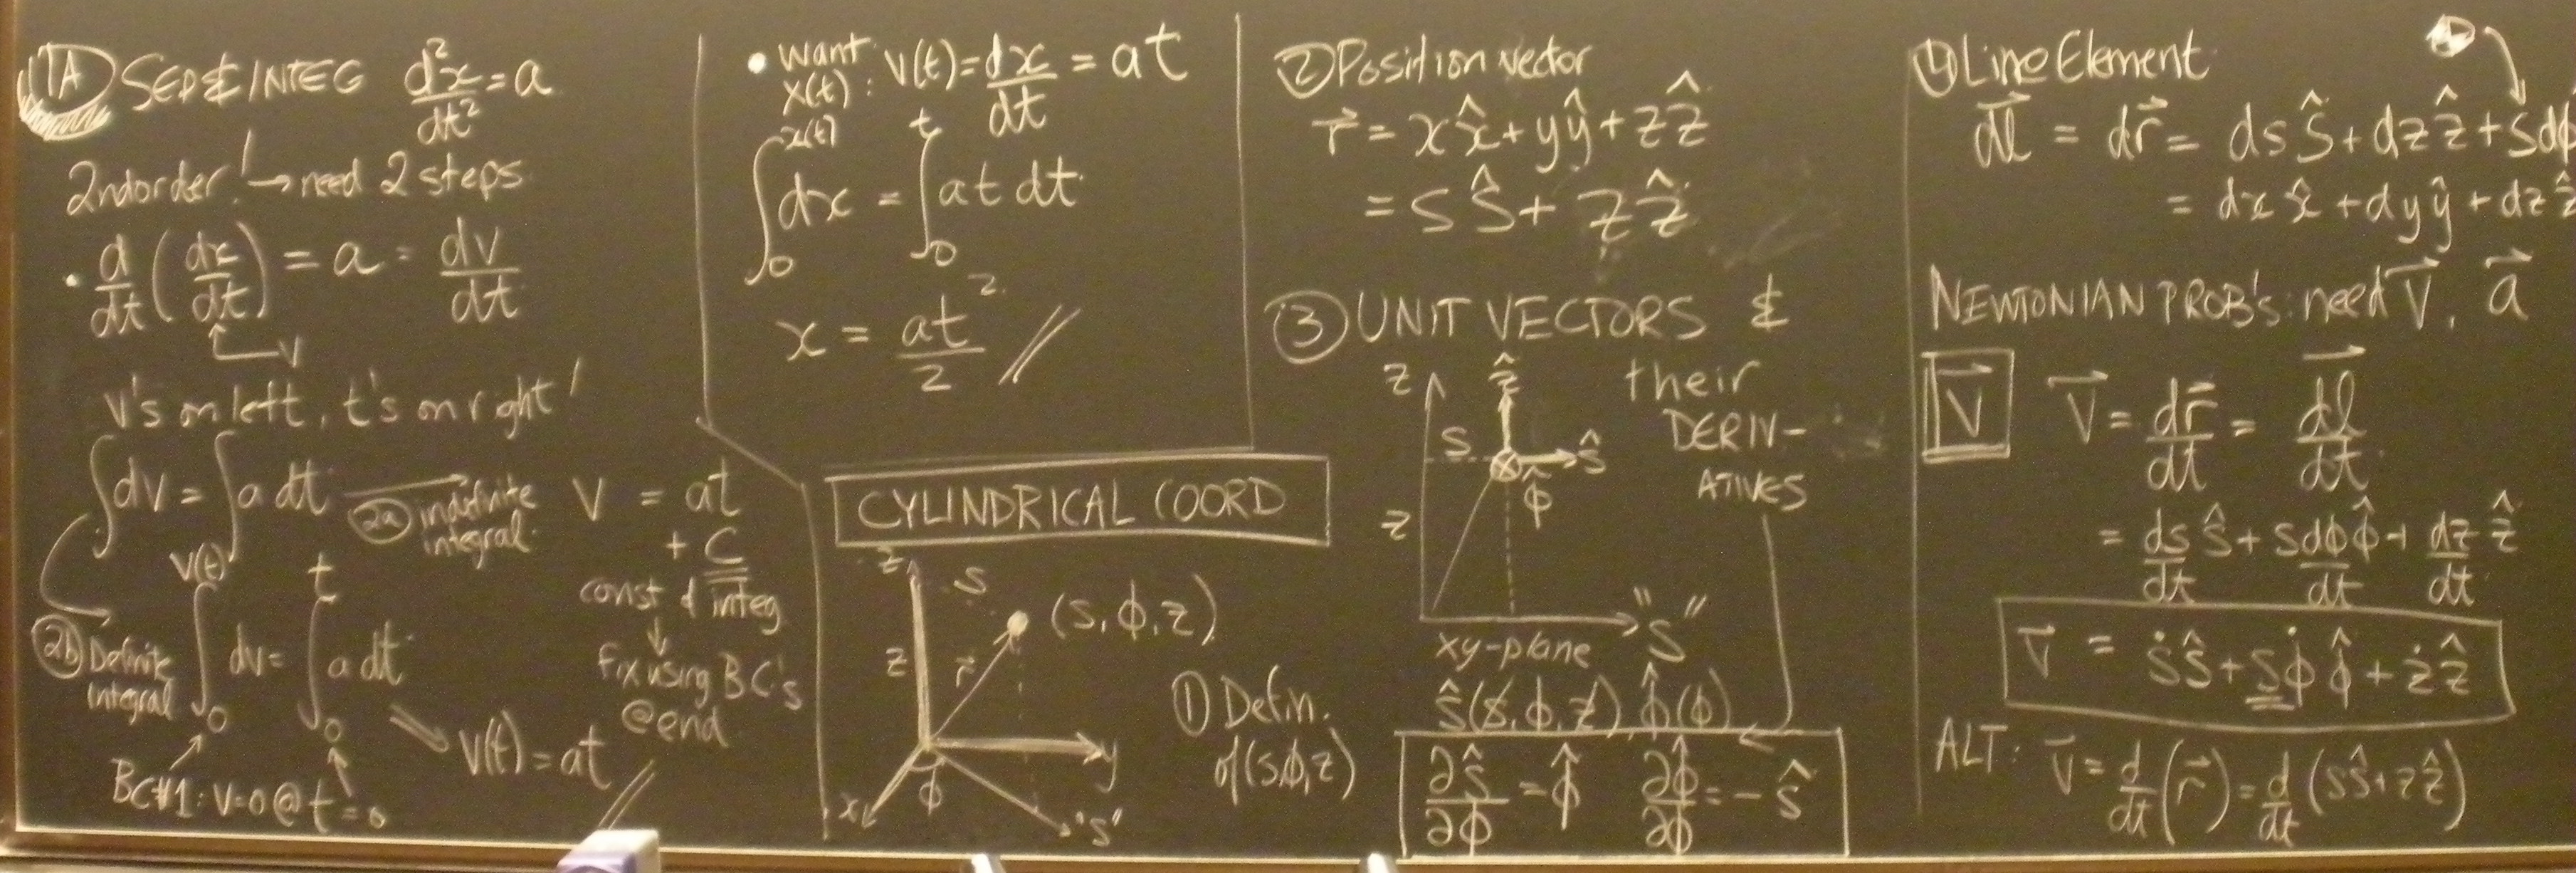 1A SEP & INTEG d²x/dt² = a
2nd order! → need 2 steps
· d/dt (dx/dt) = a = dv/dt
v
v's on left, t's on right!
∫dv = ∫a dt → 2a indefinite integral: v = at
+ C
const of integ
↓
fix using BC's
@ end
2b Definite integral ∫₀^v(t) dv = ∫₀^t a dt
v(t) = at //
BC#1: v=0 @ t=0
• want x(t): v(t) = dx/dt = at
∫₀^x(t) dx = ∫₀^t at dt
x = at²/2 //
CYLINDRICAL COORD
z
s
(s, ϕ, z)
z
r⃗
y
x
ϕ
"s"
① Defin. of (s, ϕ, z)
② Position Vector
r⃗ = x x̂ + y ŷ + z ẑ
= s ŝ + z ẑ
③ UNIT VECTORS &
their
DERIV-
ATIVES
z
ẑ
s
ŝ
ϕ̂
z
xy-plane
"s"
ŝ(s, ϕ, z), ϕ̂(ϕ)
∂ŝ/∂ϕ = ϕ̂ ∂ϕ̂/∂ϕ = -ŝ
④ Line Element
dl⃗ = dr⃗ = ds ŝ + dz ẑ + s dϕ
= dx x̂ + dy ŷ + dz ẑ
NEWTONIAN PROB's: need v⃗, a⃗
v⃗
v⃗ = dr⃗/dt = dl⃗/dt
= ds/dt ŝ + s dϕ/dt ϕ̂ + dz/dt ẑ
v⃗ = ṡ ŝ + s ϕ̇ ϕ̂ + ż ẑ
ALT: v⃗ = d/dt (r⃗) = d/dt (s ŝ + z ẑ)